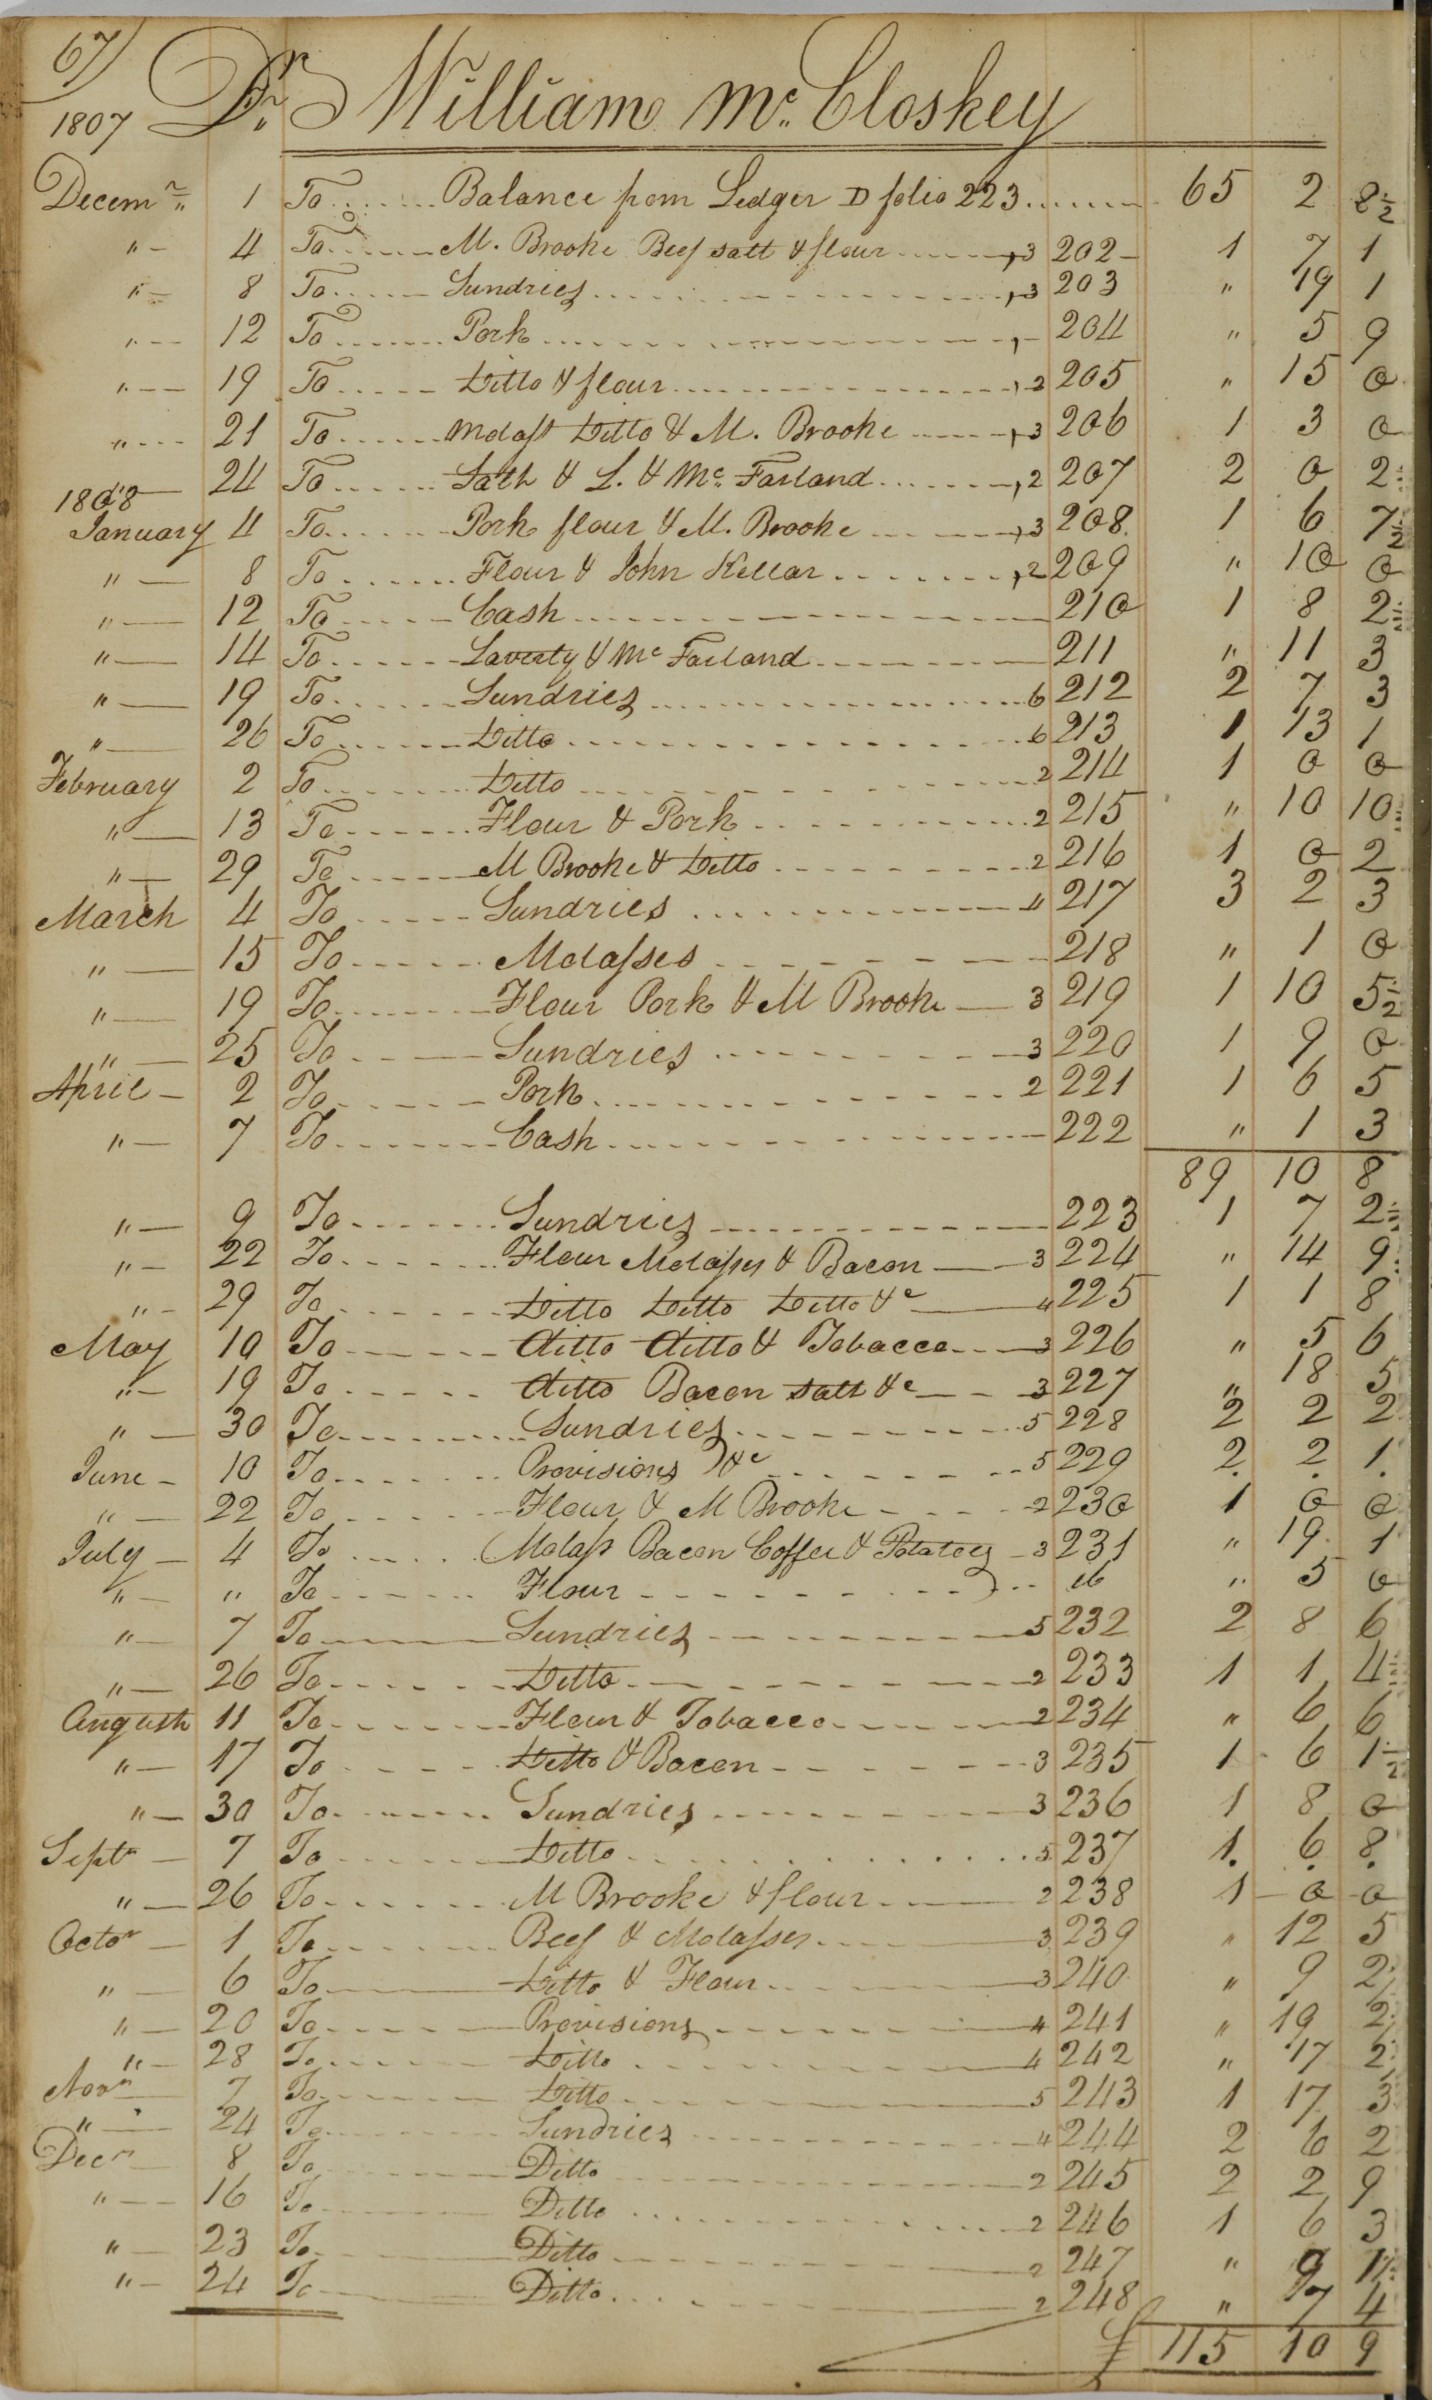 67)
1807 Dr William Mc. Closkey
Decemr 1 To Balance from Ledger D folio 223 65 2 8½
" 4 To M. Brooke Beef salt & flour 3 202 1 7 1
" 8 To Sundries 3 203 " 19 1
" 12 To Pork 204 " 5 9
" 19 To Ditto & flour 2 205 " 15 0
" 21 To Molass Ditto & M. Brooke 3 206 1 3 0
" 24 To & L. & Mc. Farland 2 207 2 0 2
1808
January 4 To Pork flour & M. Brooke 3 208 1 6 7½
" 8 To Flour & John Kellar 2 209 " 10 0
" 12 To Cash 210 1 8 2
" 14 To Laverty & Mc Farland 211 " 11 3
" 19 To Sundries 6 212 2 7 3
" 26 To Ditto 6 213 1 13 1
February 2 To Ditto 2 214 1 0 0
" 13 To Flour & Pork 2 215 " 10 10
" 29 To M Brooke & Ditto 2 216 1 0 2
March 4 To Sundries 4 217 3 2 3
" 15 To Molasses 218 " 1 0
" 19 To Flour Pork & M Brooke 3 219 1 10 5½
" 25 To Sundries 3 220 1 9 0
April 2 To Pork 2 221 1 6 5
" 7 To Cash 222 " 1 3
89 10 8
" 9 To Sundries 223 1 7 2
" 22 To Flour Molasses & Bacon 3 224 " 14 9
" 29 To Ditto Ditto Ditto &c 4 225 1 1 8
May 10 To ditto ditto & Tobacco 3 226 " 5 6
" 19 To ditto Bacon salt &c 3 227 " 18 5
" 30 To Sundries 5 228 2 2 2
June 10 To Provisions &c 5 229 2 2 1
" 22 To Flour & M Brooke 2 230 1 0 0
July 4 To Molass Bacon Coffee & Potatoes 3 231 " 19 1
" " To Flour ib " 5 0
" 7 To Sundries 5 232 2 8 6
" 26 To Ditto 2 233 1 1 4
August 11 To Flour & Tobacco 2 234 " 6 6
" 17 To Ditto & Bacon 3 235 1 6 1½
" 30 To Sundries 3 236 1 8 0
Septr 7 To Ditto 5 237 1 6 8
" 26 To M Brooke & flour 2 238 1 0 0
Octor 1 To Beef & Molasses 3 239 " 12 5
" 6 To Ditto & Flour 3 240 " 9 2
" 20 To Provisions 4 241 " 19 2
" 28 To Ditto 4 242 " 17 2
Novr 7 To Ditto 5 243 1 17 3
" 24 To Sundries 4 244 2 6 2
Decr 8 To Ditto 2 245 2 2 9
" 16 To Ditto 2 246 1 6 3
" 23 To Ditto 2 247 " 9 11
" 24 To Ditto 2 248 " 7 4
£ 115 10 9